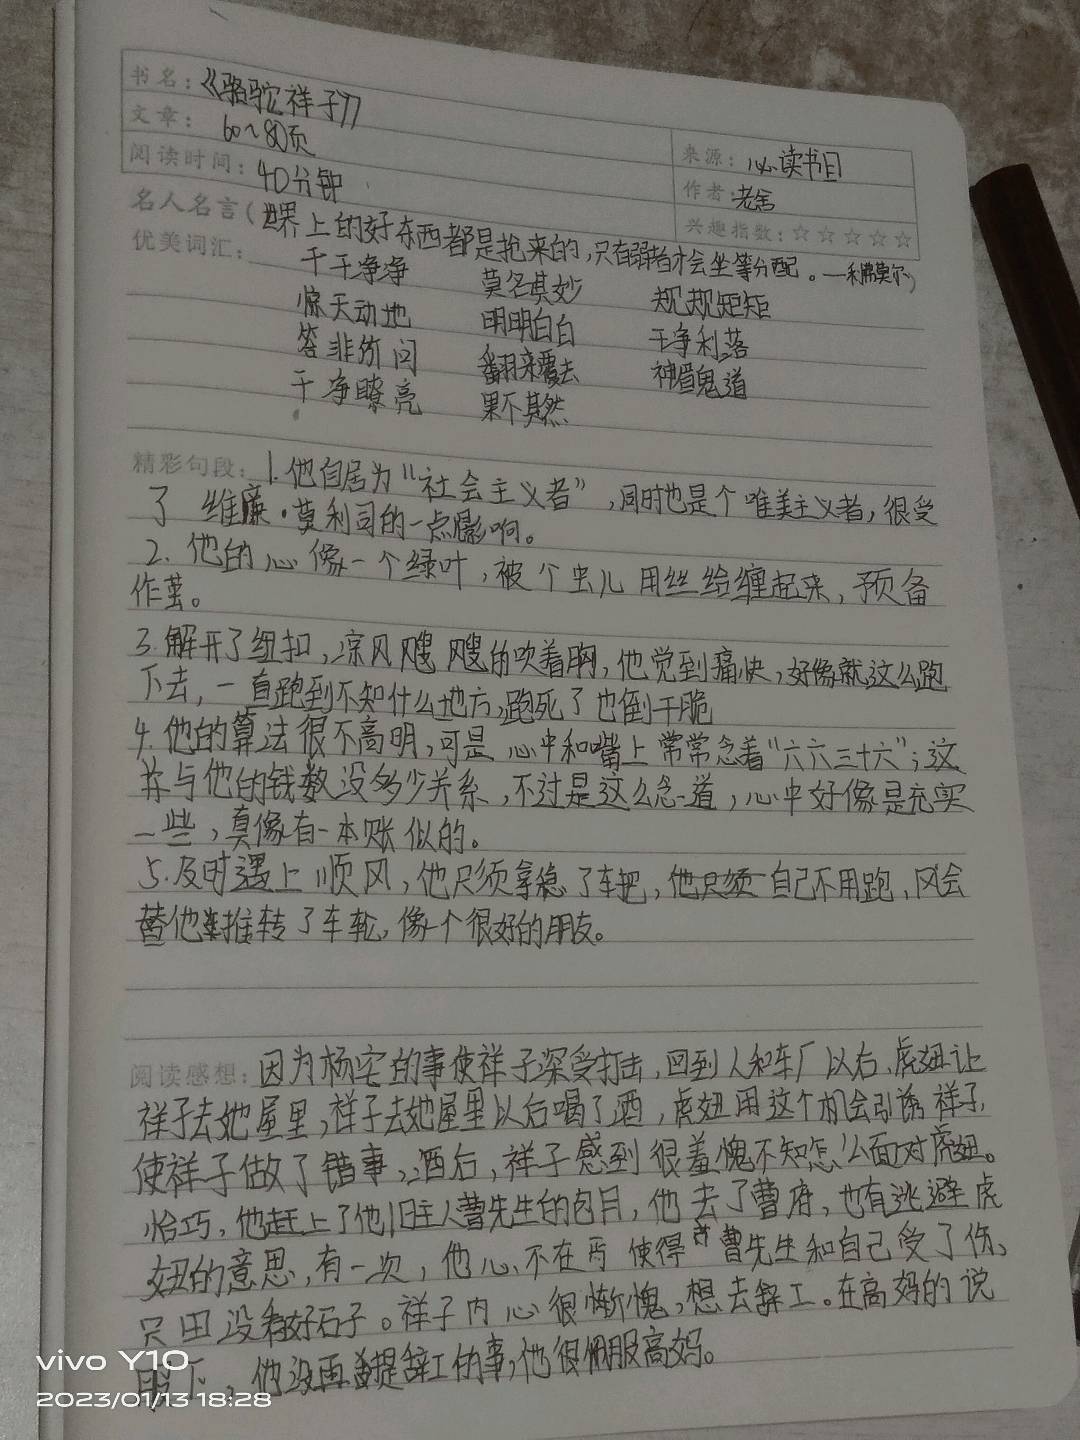 书名：《骆驼祥子》
文章： 60~80页
阅读时间：40分钟
来源：必读书目
作者：老舍
兴趣指数：☆☆☆☆☆
名人名言（世界上的好东西都是抢来的，只有弱者才会坐等分配。
优美词汇： 干干净净 莫名其妙 规规矩矩
惊天动地 明明白白 干净利落
答非所问 翻来覆去 神眉鬼道
干净瞭亮 果不其然
精彩句段：1.他自居为“社会主义者”，同时也是个唯美主义者，很受
了 维廉·莫利司的一点影响。
2.他的心像一个绿叶，被个虫儿用丝给缠起来，预备
作茧。
3.解开了纽扣，凉风飕飕的吹着胸，他觉到痛快，好像就这么跑
下去，一直跑到不知什么地方，跑死了也倒干脆
4.他的算法很不高明，可是心中和嘴上常常念着“六六三十六”；这
并与他的钱数没多少关系，不过是这么念道，心中好像是充实
一些，真像有一本账似的。
5.及时遇上顺风，他只须拿稳了车把，他只须自己不用跑，风会
替他推转了车轮，像个很好的朋友。
阅读感想：因为杨宅的事使祥子深受打击，回到人和车厂以后，虎妞让
祥子去她屋里，祥子去她屋里以后喝了酒，虎妞用这个机会引诱祥子，
使祥子做了错事，酒后，祥子感到很羞愧不知怎么面对虎妞。
恰巧，他赶上了他旧主人曹先生的包月，他去了曹府，也有逃避虎
妞的意思，有一次，他心不在焉使得曹先生和自己受了伤、
只因没看好石子。祥子内心很惭愧，想去辞工。在高妈的说
服下，他没再提辞工的事，他很佩服高妈。
vivo Y10
2023/01/13 18:28